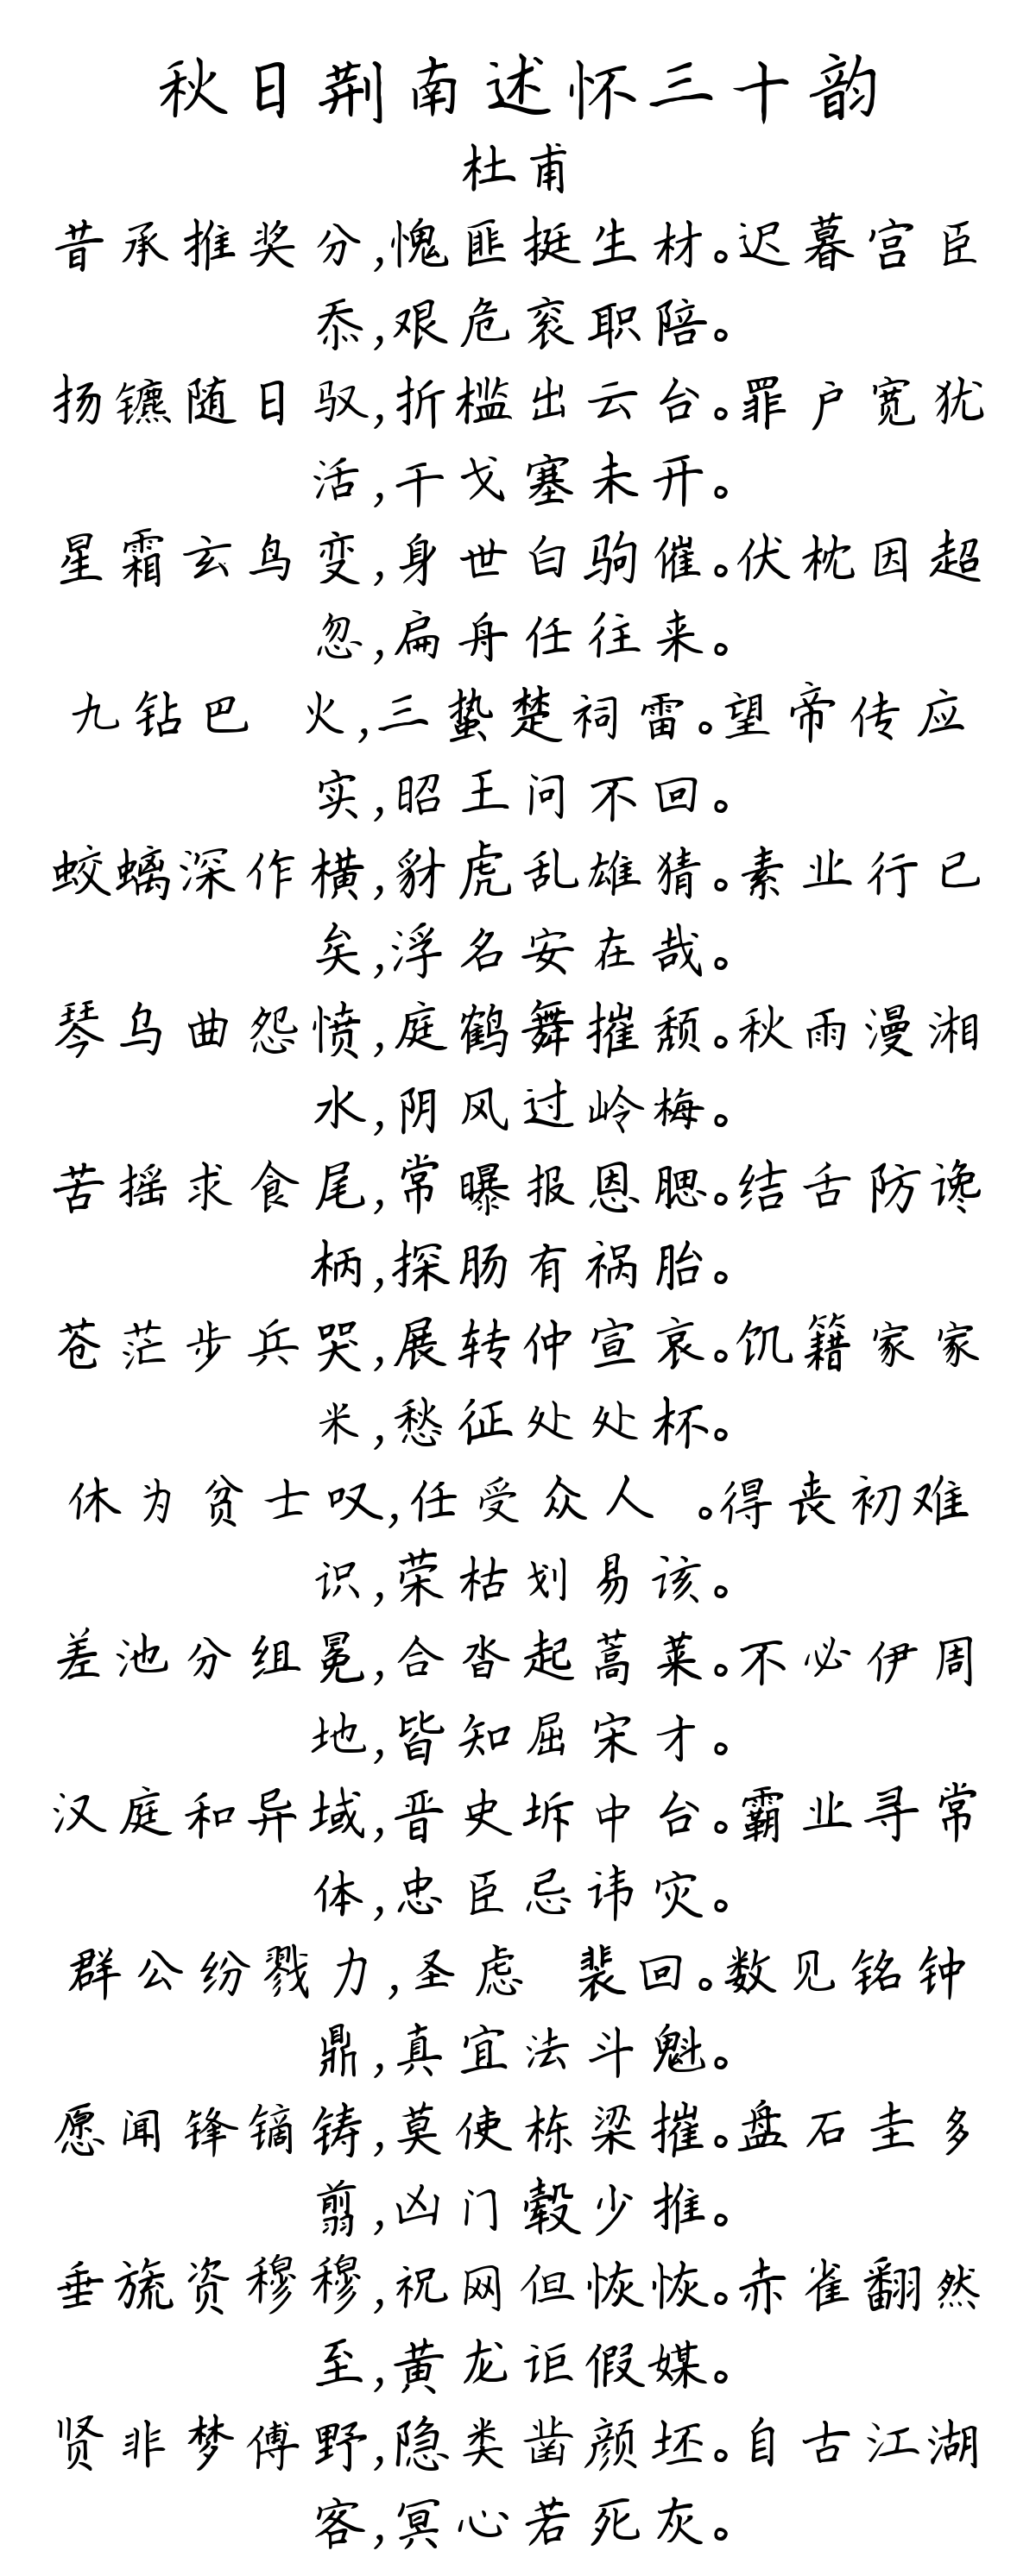 秋日荆南述怀三十韵
杜甫
昔承推奖分,愧匪挺生材。迟暮宫臣
忝,艰危衮职陪。
扬镳随日驭,折槛出云台。罪户宽犹
活,干戈塞未开。
星霜玄鸟变,身世白驹催。伏枕因超
忽,扁舟任往来。
九钻巴 火,三蛰楚祠雷。望帝传应
实,昭王问不回。
蛟螭深作横,豺虎乱雄猜。素业行已
矣,浮名安在哉。
琴乌曲怨愤,庭鹤舞摧颓。秋雨漫湘
水,阴风过岭梅。
苦摇求食尾,常曝报恩腮。结舌防谗
柄,探肠有祸胎。
苍茫步兵哭,展转仲宣哀。饥籍家家
米,愁征处处杯。
休为贫士叹,任受众人 。得丧初难
识,荣枯划易该。
差池分组冕,合沓起蒿莱。不必伊周
地,皆知屈宋才。
汉庭和异域,晋史坼中台。霸业寻常
体,忠臣忌讳灾。
群公纷戮力,圣虑 裴回。数见铭钟
鼎,真宜法斗魁。
愿闻锋镝铸,莫使栋梁摧。盘石圭多
翦,凶门毂少推。
垂旒资穆穆,祝网但恢恢。赤雀翻然
至,黄龙讵假媒。
贤非梦傅野,隐类凿颜坯。自古江湖
客,冥心若死灰。